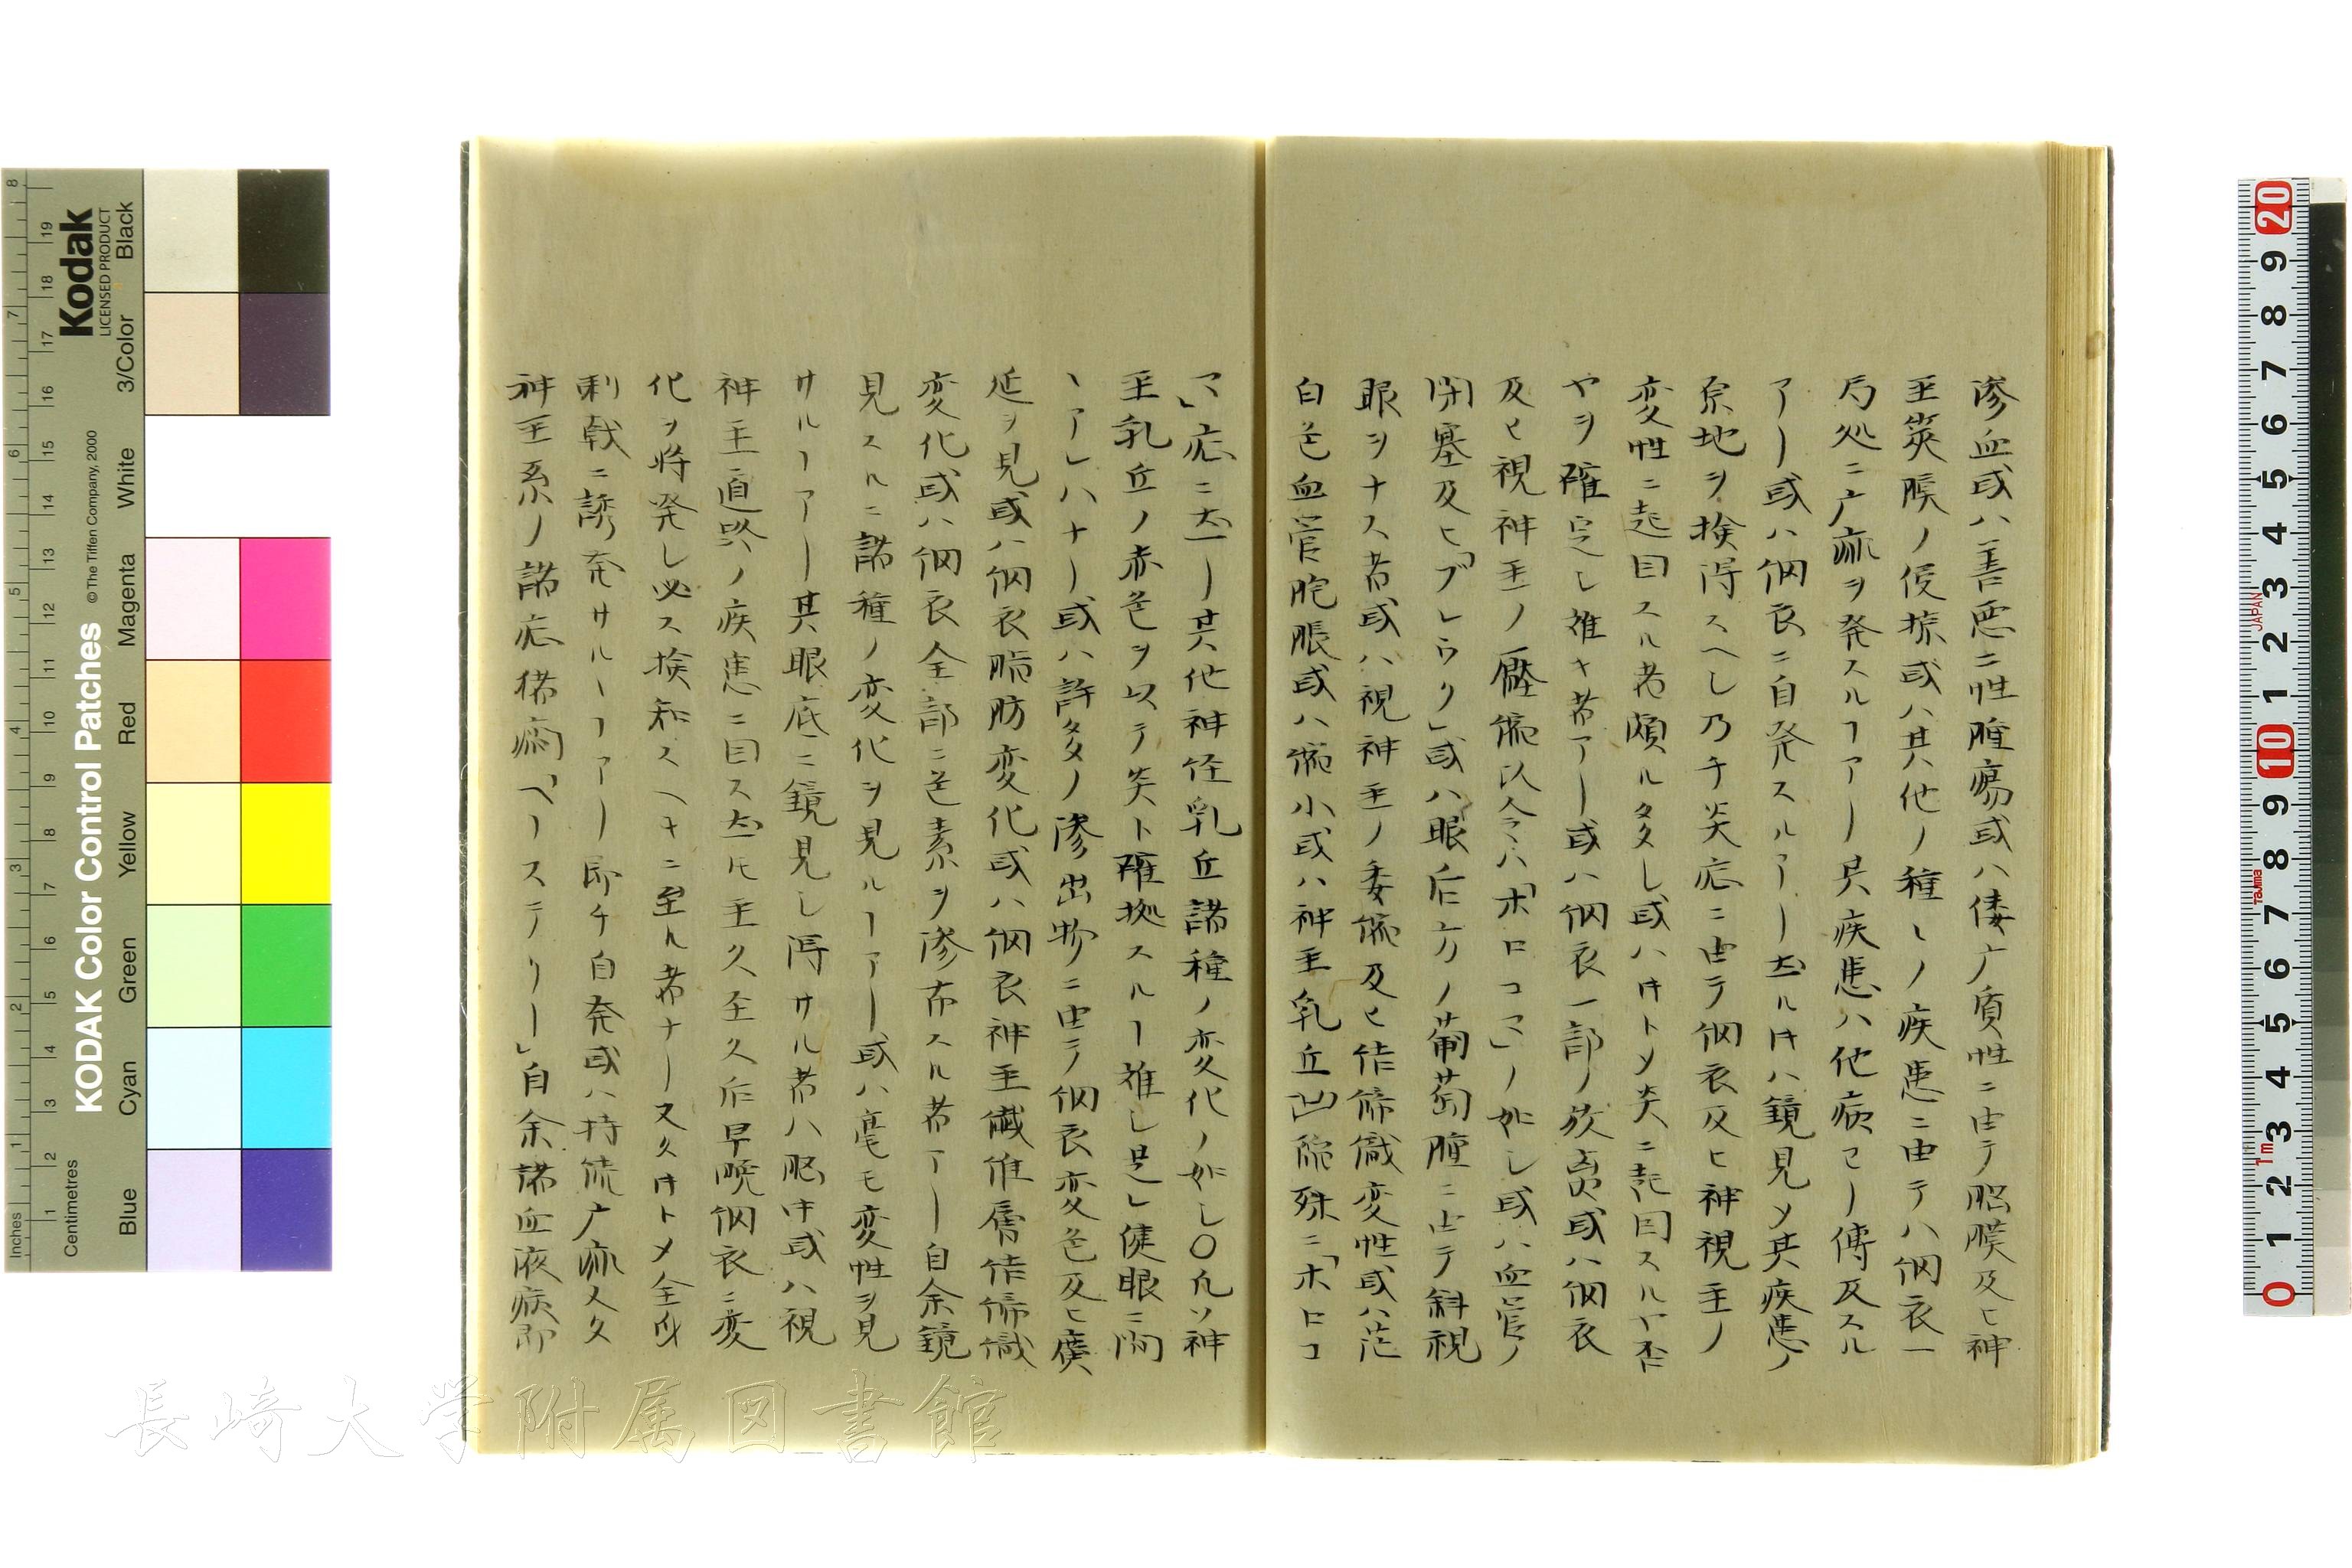 滲血或ハ善悪二性腫瘍或ハ倭广質性ニ由テ脳膜及ヒ神
至筴膜ノ侵掠或ハ其他ノ種〻ノ疾患ニ由テハ㓁衣一
局処ニ广痲ヲ発スルヿアリ一具疾患ハ他病ヨリ傳及スル
アリ或ハ㓁衣ニ自発スルアリ一左ルキハ鏡見シ其疾患ノ
原地ヲ検得スヘし乃チ炎症ニ由テ㓁衣及ヒ神視至ノ
変性ニ起因スル者頗ル多し或ハ时トメ炎ニ起因スルヤ否
ヤヲ確定し難キ者アリ或ハ㓁衣一部ノ或ハ㓁衣
及ヒ視神至ノ壓ハ「ホロコマ」ノ如し或ハ血管ノ
閉塞及ヒ「ブレウク」或ハ眼后方ノ葡萄腫ニ由テ斜視
眼ヲナス者或ハ視神至ノ委縮及ヒ結締織変性或ハ茫
白色血管脆脹或ハ縮小或ハ神至乳丘凹縮殊ニ「ホロコ
マ」症ニ左リ其他神径乳丘諸種ノ変化ノ如し〇凡ソ神
至乳丘ノ赤色ヲ以テ炎ト確拠スルヿ難し是レ健眼ニ間
〻アレハナリ或ハ許多ノ滲出物ニ由テ㓁衣変色及ヒ廣
延ヲ見或ハ㓁衣脂肪変化或ハ㓁衣神至纎維層結締織
変化或ハ㓁衣全部ニ色素ヲ滲布スル者アリ自余鏡
見スルニ諸種ノ変化ヲ見ルヿアリ或ハ毫モ変性ヲ見
サルヿアリ其眼底ニ鏡見し得サル者ハ脳中或ハ視
神至道路ノ疾患ニ因ス左ㇾ𪜈至久至久后早晩㓁衣ニ変
化ヲ将発し必ス検知スヘキニ至ル者ナリ又久时トメ全身
刺戟ニ誘発サルヿアリ即チ自発或ハ持続广痲久久
神至系ノ諸症癲癇「ヘーステリー」自余諸血液病即
KODAK Color Control Patches
Kodak
LICENSED PRODUCT
© The Tiffen Company, 2000
Inches
Centimetres
Blue
Cyan
Green
Yellow
Red
Magenta
White
3/Color
Black
JAPAN
Tajima
1m
長崎大学附属図書館